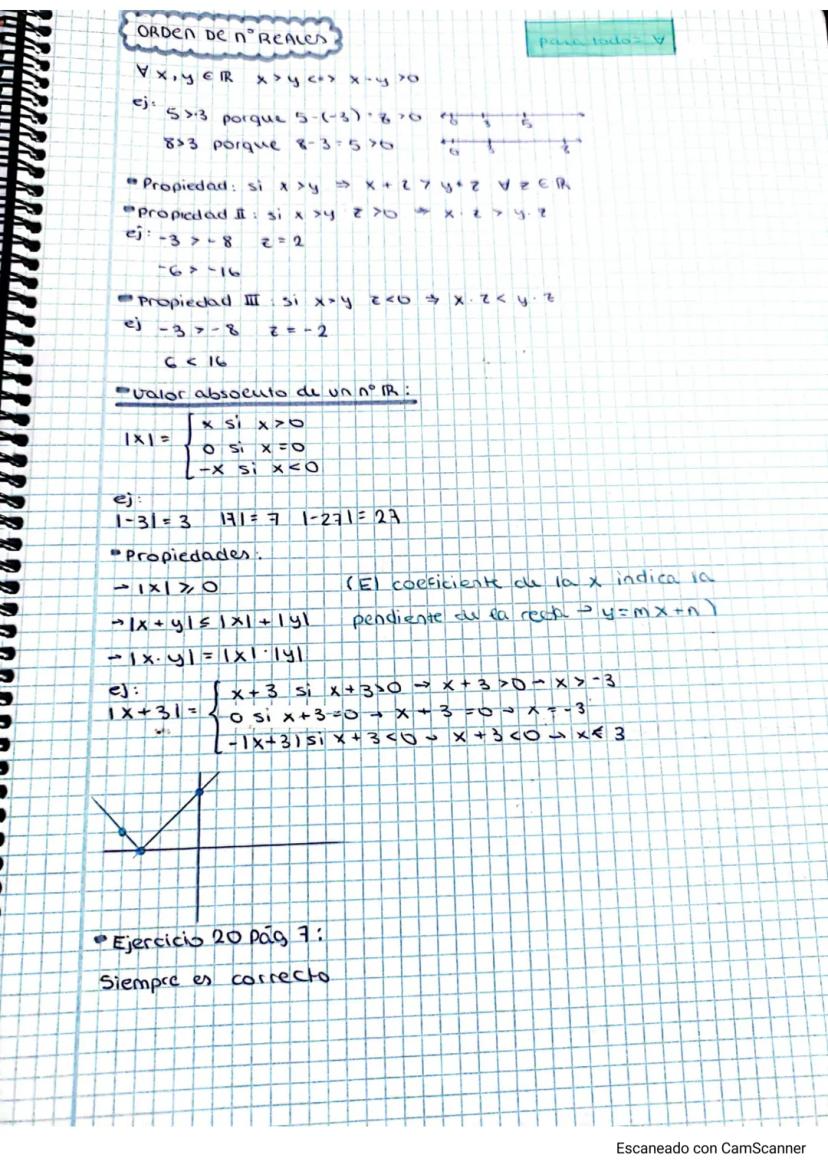 ORDEN DE nº REALES
para todo = ∀
∀ x, y ∈ IR x > y <=> x - y > 0
ej:
5 > -3 porque 5 - (-3) = 8 > 0
0 3 5
8 > 3 porque 8 - 3 = 5 > 0
0 3 8
Propiedad: si x > y ⇒ x + z > y + z ∀ z ∈ IR
Propiedad II: si x > y z > 0 ⇒ x · z > y · z
ej: -3 > -8 z = 2
-6 > -16
Propiedad III: si x > y z < 0 ⇒ x · z < y · z
ej -3 > -8 z = -2
6 < 16
valor absoluto de un nº IR:
|x| = { x si x > 0
0 si x = 0
-x si x < 0
ej:
|-3| = 3 |7| = 7 |-27| = 27
Propiedades:
→ |x| ⩾ 0 (El coeficiente de la x indica la
→ |x + y| ≤ |x| + |y| pendiente de la recta → y = mx + n)
→ |x · y| = |x| · |y|
ej:
|x + 3| = { x + 3 si x + 3 > 0 → x + 3 > 0 → x > -3
0 si x + 3 = 0 → x + 3 = 0 → x = -3
-(x + 3) si x + 3 < 0 → x + 3 < 0 → x < 3
Ejercicio 20 pág 7:
Siempre es correcto
Escaneado con CamScanner